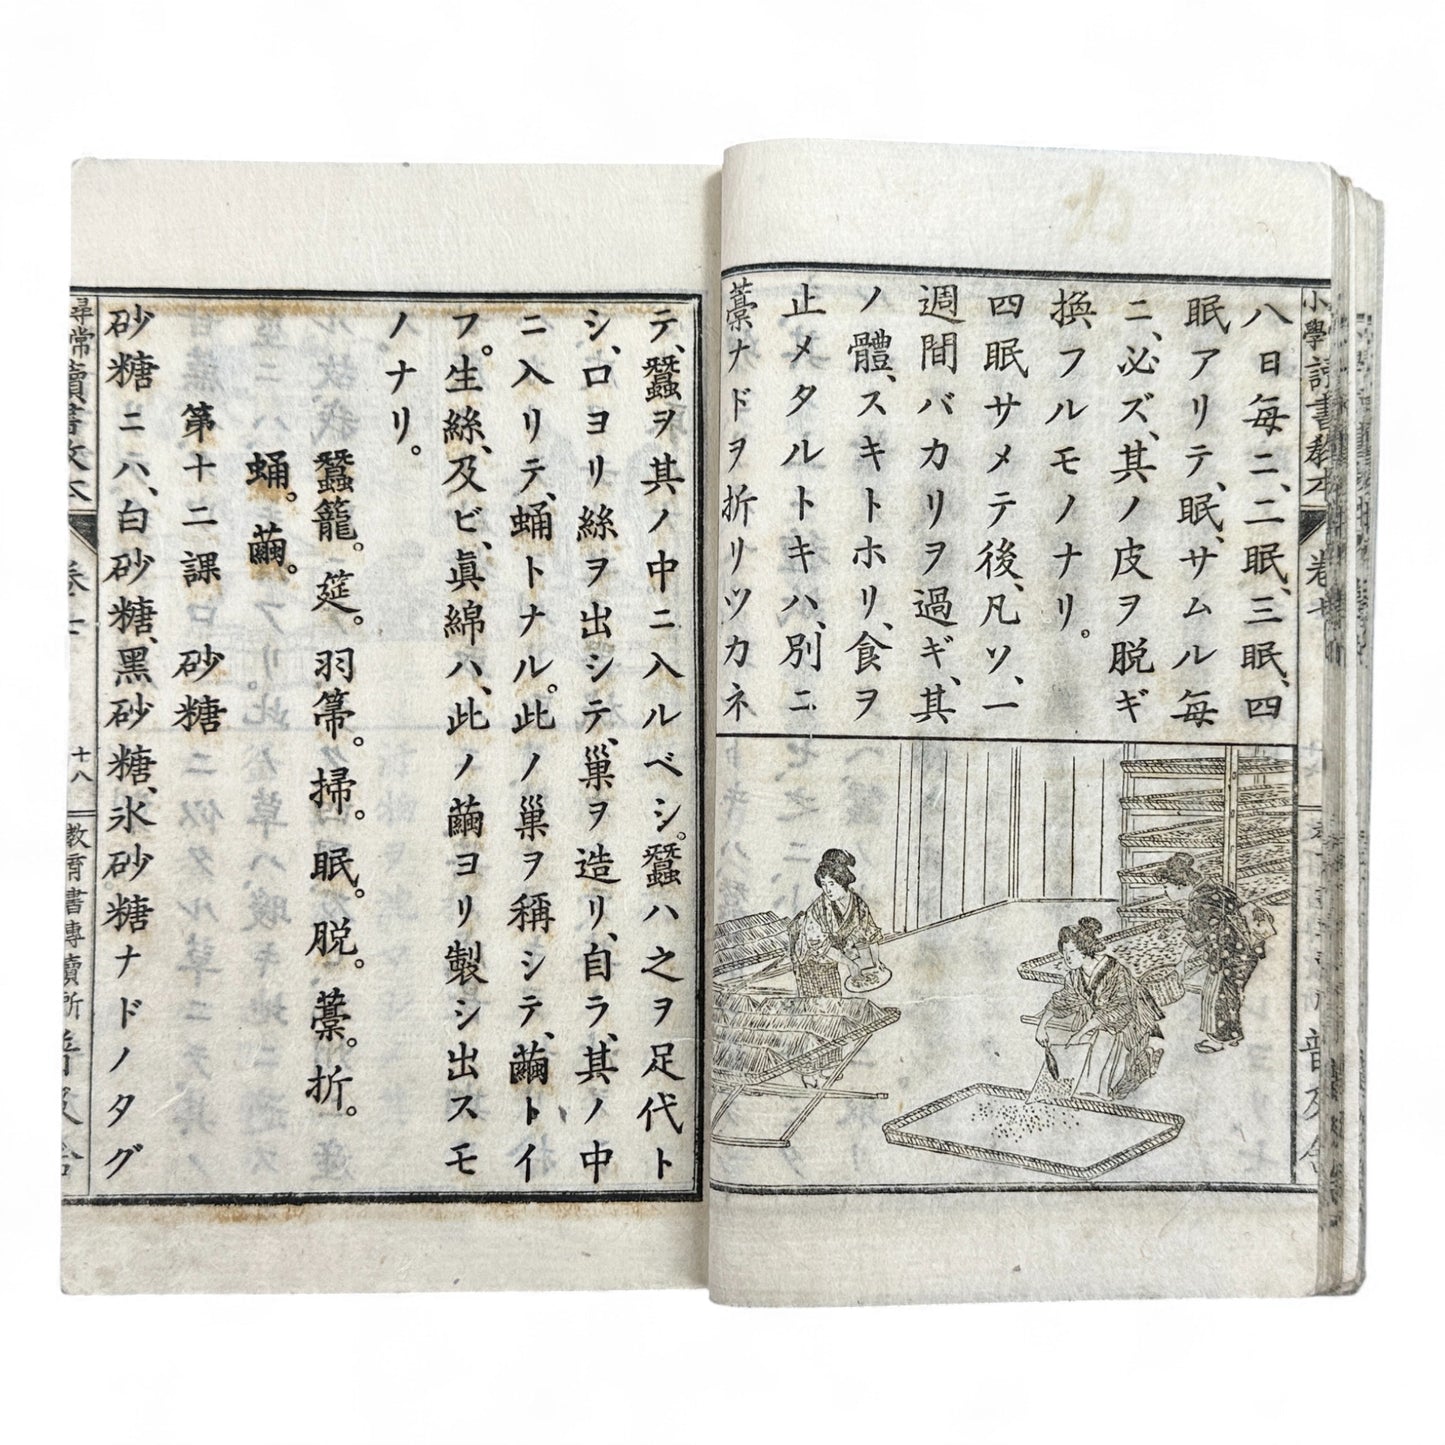 八日毎ニ、二眠、三眠、四
眠アリテ、眠、サムル毎
ニ、必ズ、其ノ皮ヲ脱ギ
換フルモノナリ。
四眠サメテ後、凡ソ、一
週間バカリヲ過ギ、其
ノ體、スキトホリ、食ヲ
止メタルトキハ、別ニ
藁ナドヲ折リツカネ
テ、蠶ヲ其ノ中ニ入ルベシ。蠶ハ之ヲ足代ト
シ、口ヨリ絲ヲ出シテ、巢ヲ造リ、自ラ、其ノ中
ニ入リテ、蛹トナル。此ノ巢ヲ稱シテ、繭トイ
フ。生絲、及ビ、眞綿ハ、此ノ繭ヨリ製シ出スモ
ノナリ。
蠶籠。筵。羽箒。掃。眠。脱。藁。折。
蛹。繭。
第十二課 砂糖
砂糖ニハ、白砂糖、黑砂糖、氷砂糖ナドノタグ
尋常讀書教本 卷七 十八 教育書專賣所 普及舍